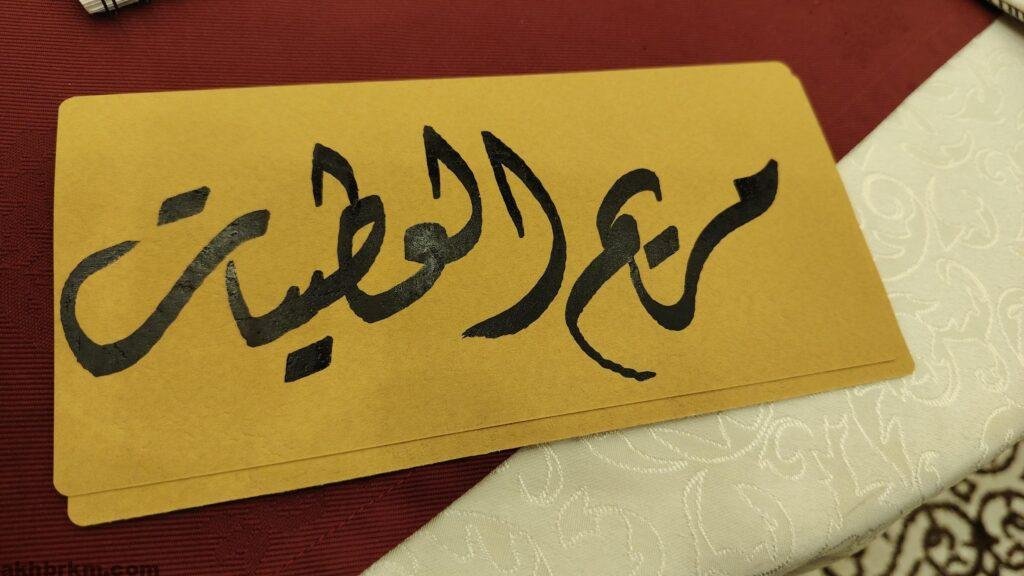 مريم العطيات
akhbrkm.com